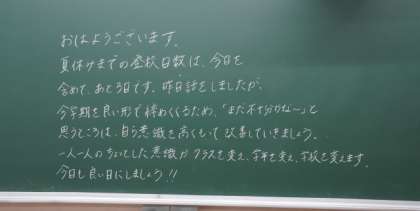 おはようございます。
夏休みまでの登校日数は、今日を
含めて、あと3日です。昨日話をしましたが、
今学期を良い形で締めくくるため、「まだ不十分かな〜」と
思うところは、自ら意識を高くもって改善していきましょう。
一人一人のちょっとした意識が クラスを変え、学年を変え、学校を変えます。
今日も良い日にしましょう!!